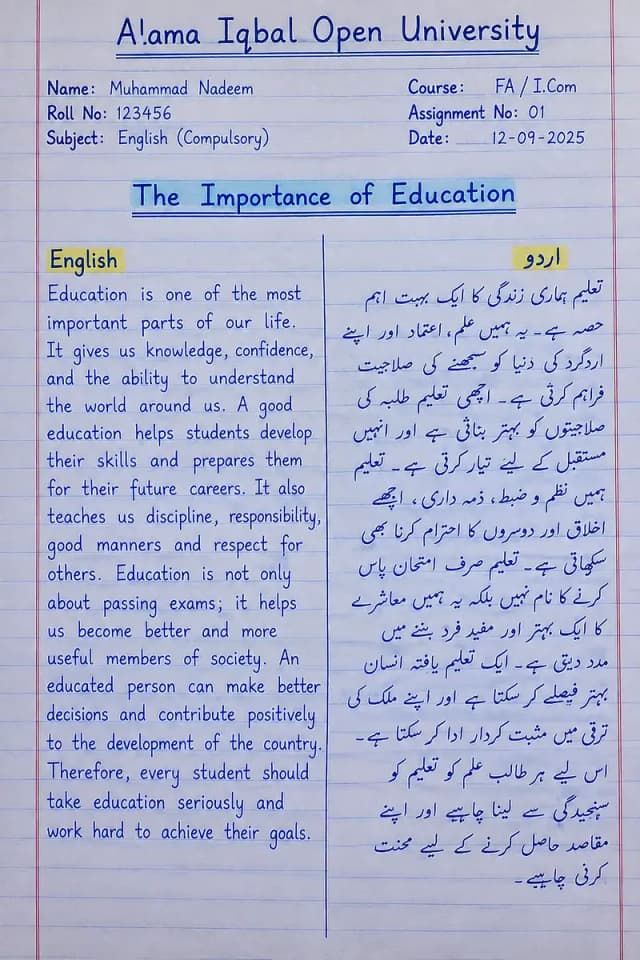 A!ama Iqbal Open University
Name: Muhammad Nadeem
Course: FA / I.Com
Roll No: 123456
Assignment No: 01
Subject: English (Compulsory)
Date: 12-09-2025
The Importance of Education
English
Education is one of the most
important parts of our life.
It gives us knowledge, confidence,
and the ability to understand
the world around us. A good
education helps students develop
their skills and prepares them
for their future careers. It also
teaches us discipline, responsibility,
good manners and respect for
others. Education is not only
about passing exams; it helps
us become better and more
useful members of society. An
educated person can make better
decisions and contribute positively
to the development of the country.
Therefore, every student should
take education seriously and
work hard to achieve their goals.
اردو
تعلیم ہماری زندگی کا ایک بہت اہم
حصہ ہے۔ یہ ہمیں علم، اعتماد اور اپنے
اردگرد کی دنیا کو سمجھنے کی صلاحیت
فراہم کرتی ہے۔ اچھی تعلیم طلبہ کی
صلاحیتوں کو بہتر بناتی ہے اور انہیں
مستقبل کے لیئے تیار کرتی ہے۔ تعلیم
ہمیں نظم و ضبط، ذمہ داری، اچھے
اخلاق اور دوسروں کا احترام کرنا بھی
سکھاتی ہے۔ تعلیم صرف امتحان پاس
کرنے کا نام نہیں بلکہ یہ ہمیں معاشرے
کا ایک بہتر اور مفید فرد بننے میں
مدد دیتی ہے۔ ایک تعلیم یافتہ انسان
بہتر فیصلے کر سکتا ہے اور اپنے ملک کی
ترقی میں مثبت کردار ادا کر سکتا ہے۔
اس لیے ہر طالب علم کو تعلیم کو
سنجیدگی سے لینا چاہیے اور اپنے
مقاصد حاصل کرنے کے لیے محنت
کرنی چاہیے۔